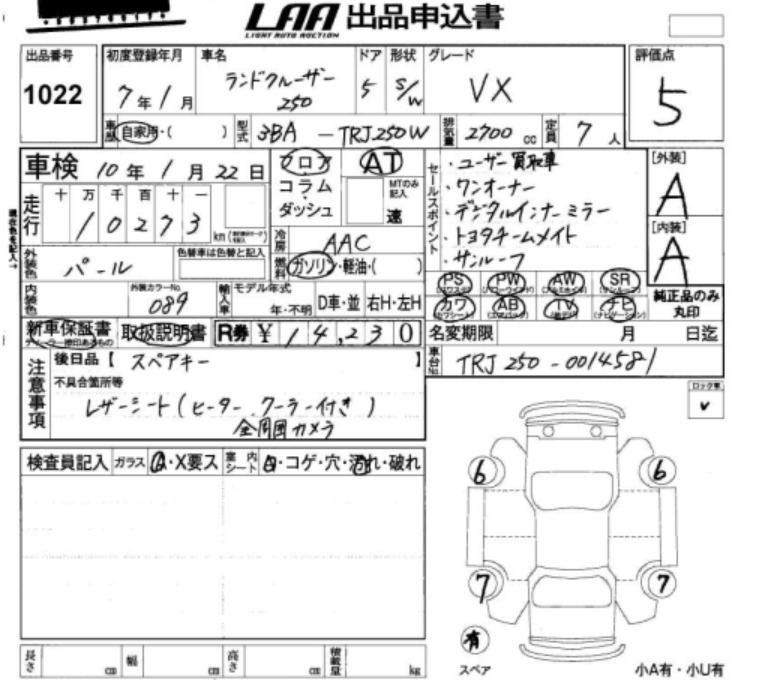 LAA 出品申込書
LIGHT AUTO AUCTION
出品番号 1022
初度登録年月 7年1月
車名 ランドクルーザー 250
ドア 5
形状 S/W
グレード VX
評価点 5
車歴 自家用・( )
型式 3BA-TRJ250W
排気量 2700 cc
定員 7 人
車検 10年1月22日
フロア AT
コラム
ダッシュ
MTのみ記入
速
セールスポイント
・ユーザー買取車
・ワンオーナー
・デジタルインナーミラー
・トヨタチームメイト
・サンルーフ
[外装] A
[内装] A
走行 十 万 千 百 十 一
10273 km
冷房 AAC
燃料 ガソリン・軽油・( )
外装色 パール
色替車は色替と記入
内装色
外装カラーNo. 089
輸入車 モデル年式 年・不明
D車・並 右H・左H
PS PW AW SR
カワ AB TV ナビ
純正品のみ丸印
新車保証書 取扱説明書
R券 ¥14,230
名変期限 月 日迄
車台No. TRJ250-0014581
注意事項
後日品【 スペアキー 】
不具合箇所等
レザーシート(ヒーター、クーラー付き)
全周囲カメラ
ロック車
検査員記入 ガラス A・X要ス
室内シート ・コゲ・穴・汚れ・破れ
6 6
7 7
有
スペア
小A有・小U有
長さ cm 幅 cm 高さ cm 積載量 kg